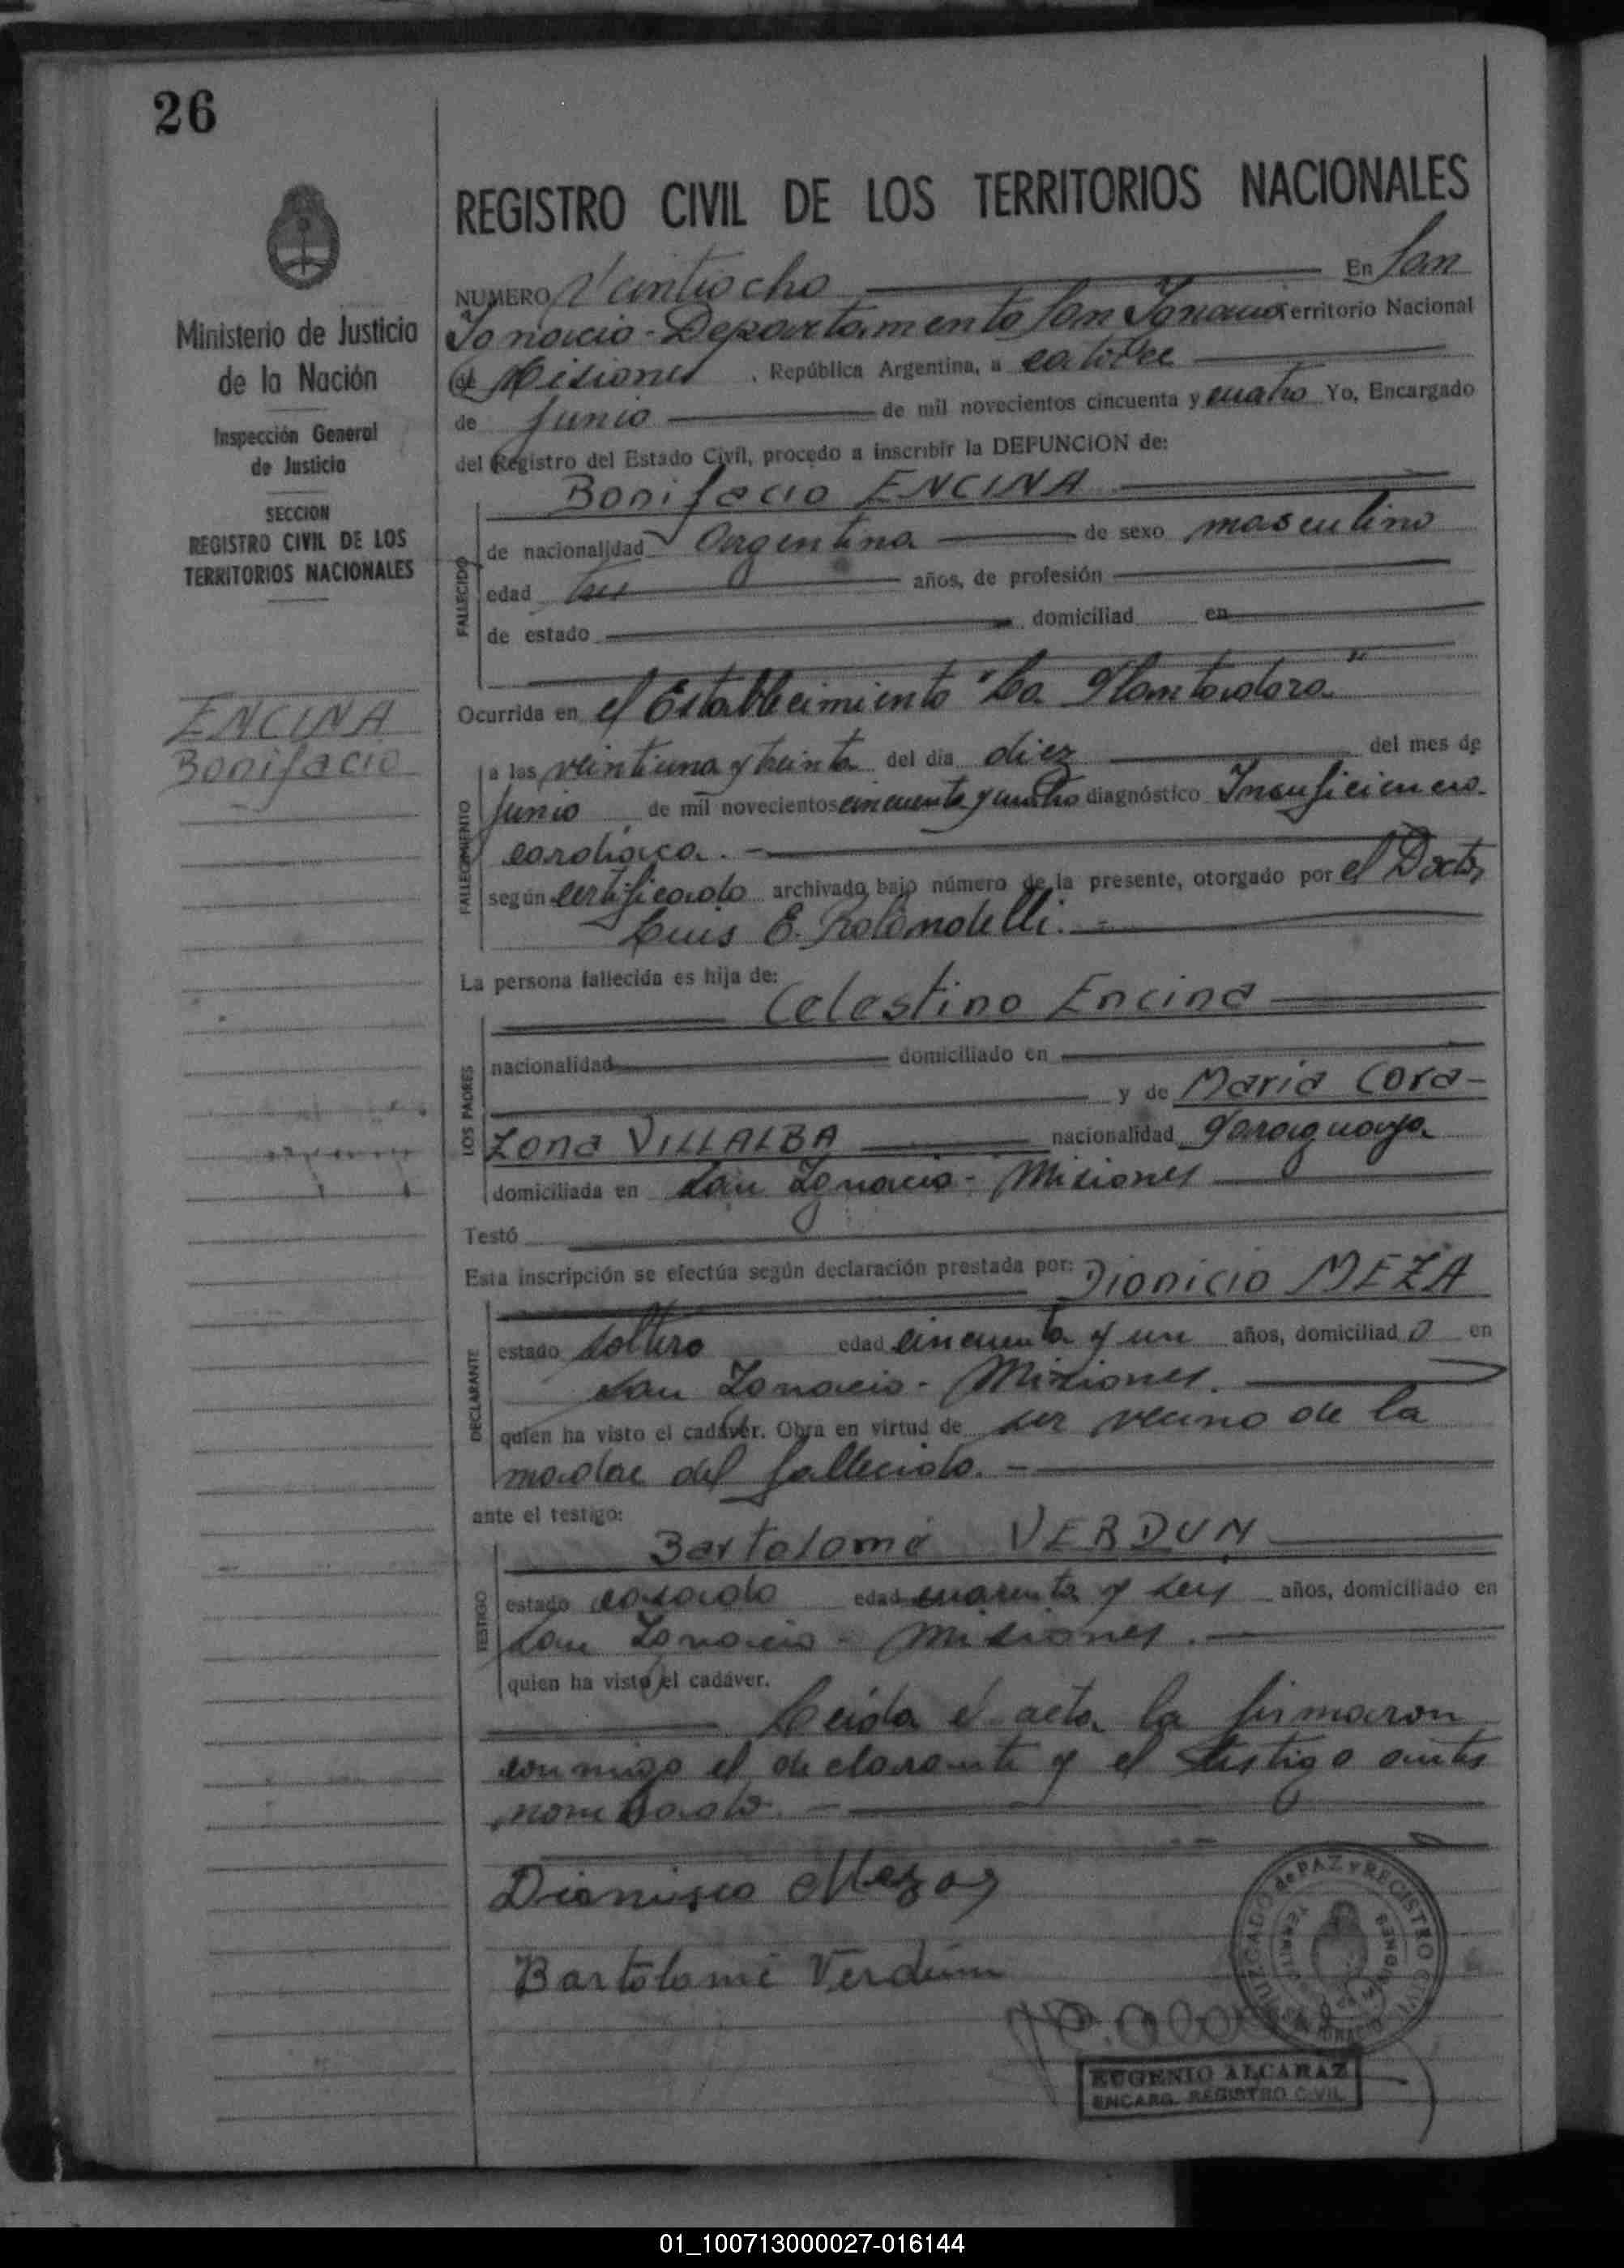 26
REGISTRO CIVIL DE LOS TERRITORIOS NACIONALES
Ministerio de Justicia
de la Nación
Inspección General
de Justicia
SECCION
REGISTRO CIVIL DE LOS
TERRITORIOS NACIONALES
ENCINA
Bonifacio
NUMERO Veintiocho En San
Ignacio - Departamento San Ignacio Territorio Nacional
de Misiones, República Argentina, a catorce
de junio de mil novecientos cincuenta y cuatro Yo, Encargado
del Registro del Estado Civil, procedo a inscribir la DEFUNCION de:
Bonifacio ENCINA
FALLECIDO
de nacionalidad Argentina de sexo masculino
edad tres años, de profesión
de estado domiciliad en
Ocurrida en el Establecimiento "La Plantadora"
FALLECIMIENTO
a las veintiuna y treinta del día diez del mes de
junio de mil novecientos cincuenta y cuatro diagnóstico Insuficiencia
cardiaca. -
según certificado archivado bajo número de la presente, otorgado por el Doctor
Luis E. Rolandelli. -
La persona fallecida es hija de:
Celestino Encina
LOS PADRES
nacionalidad domiciliado en
y de Maria Cora-
zona VILLALBA nacionalidad Paraguaya
domiciliada en San Ignacio - Misiones
Testó
Esta inscripción se efectúa según declaración prestada por: Dionicio MEZA
DECLARANTE
estado soltero edad cincuenta y un años, domiciliad o en
San Ignacio - Misiones.
quien ha visto el cadáver. Obra en virtud de ser vecino de la
madre del fallecido. -
ante el testigo:
Bartolomé VERDUN
TESTIGO
estado casado edad cuarenta y seis años, domiciliado en
San Ignacio - Misiones. -
quien ha visto el cadáver.
Leída el acta, la firmaron
conmigo el declarante y el testigo antes
nombrado. -
Dionisio Meza
Bartolomé Verdún
JUZGADO de PAZ y REGISTRO CIVIL
SAN IGNACIO
MISIONES
EUGENIO ALCARAZ
ENCARG. REGISTRO CIVIL
01_100713000027-016144